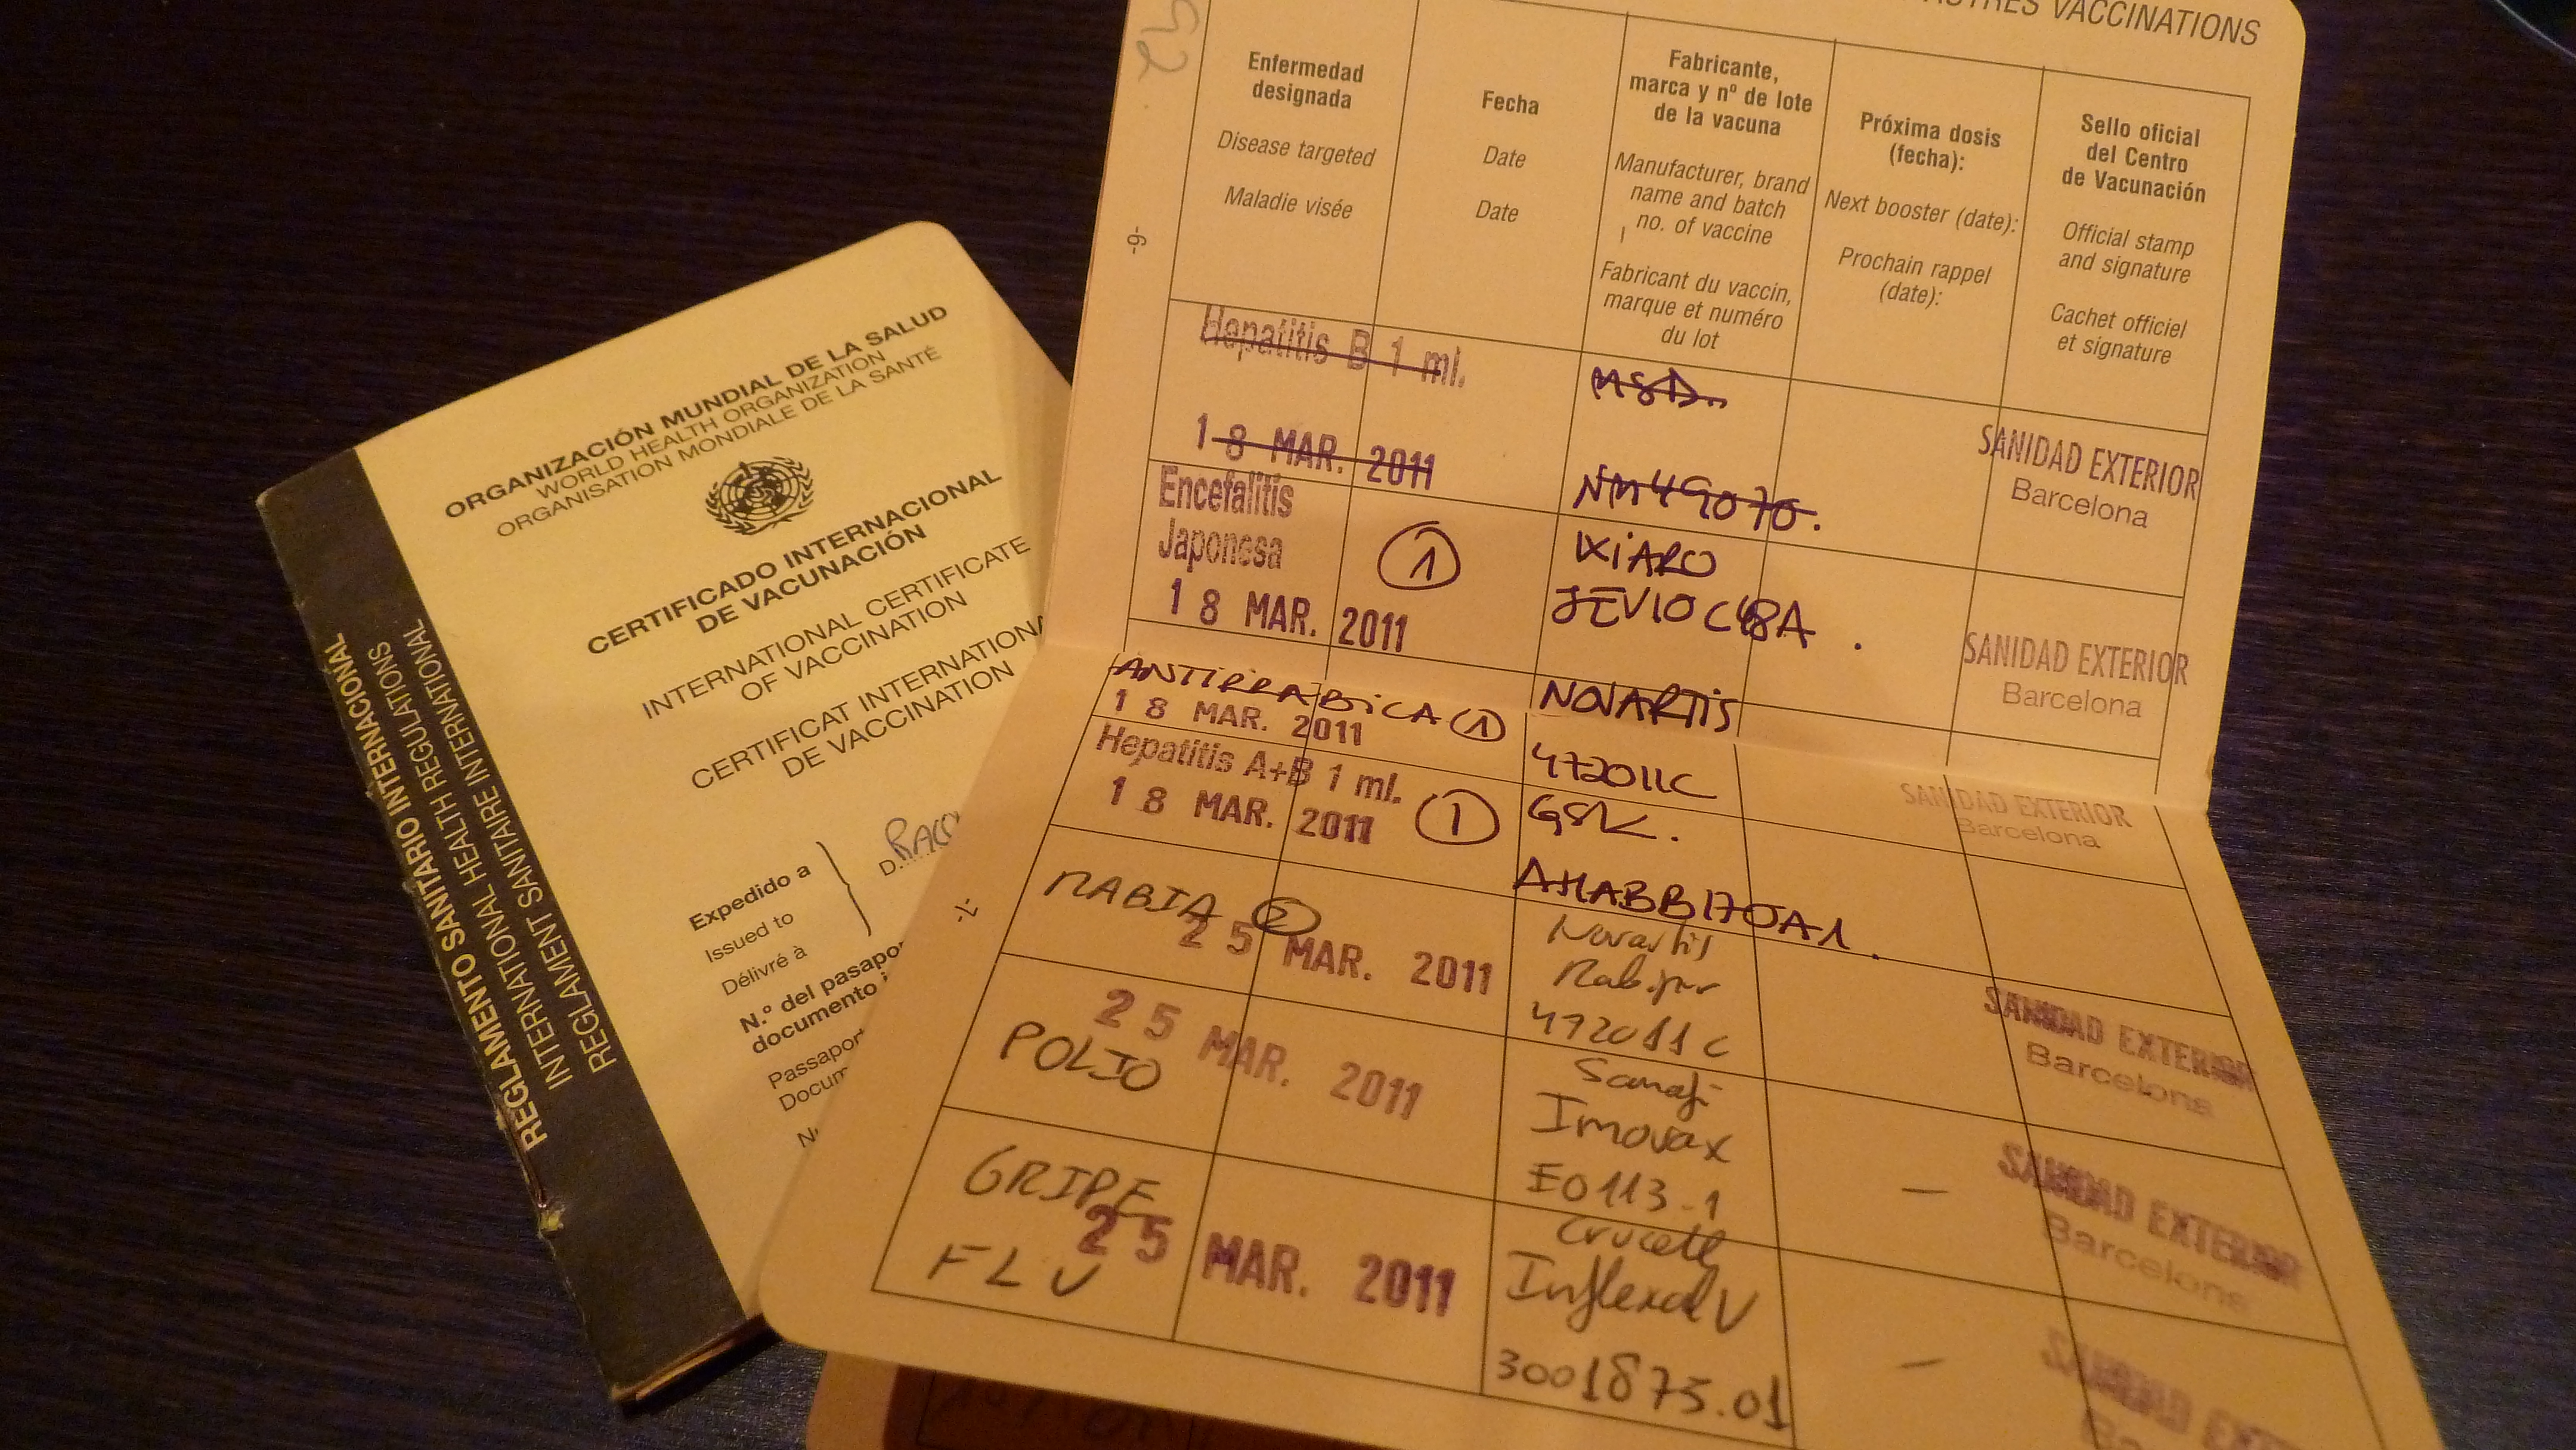 ORGANIZACIÓN MUNDIAL DE LA SALUD
WORLD HEALTH ORGANIZATION
ORGANISATION MONDIALE DE LA SANTÉ
CERTIFICADO INTERNACIONAL
DE VACUNACIÓN
INTERNATIONAL CERTIFICATE
OF VACCINATION
CERTIFICAT INTERNATIONA
DE VACCINATION
Expedido a
Issued to
Délivré à
D.
N.º del pasapo
documento
Passapor
Docum
REGLAMENTO SANITARIO INTERNACIONAL
INTERNATIONAL HEALTH REGULATIONS
REGLAMENT SANITAIRE INTERNATIONAL
VACCINATIONS
-6-
Enfermedad
designada
Disease targeted
Maladie visée
Fecha
Date
Date
Fabricante,
marca y nº de lote
de la vacuna
Manufacturer, brand
name and batch
no. of vaccine
Fabricant du vaccin,
marque et numéro
du lot
Próxima dosis
(fecha):
Next booster (date):
Prochain rappel
(date):
Sello oficial
del Centro
de Vacunación
Official stamp
and signature
Cachet officiel
et signature
Hepatitis B 1 ml.
18 MAR. 2011
MSD
NM49070.
SANIDAD EXTERIOR
Barcelona
Encefalitis
Japonesa
1
18 MAR. 2011
IXiARO
SANIDAD EXTERIOR
Barcelona
ANTIRRABiCA 1
18 MAR. 2011
NOVARTiS
472011C
SANIDAD EXTERIOR
Barcelona
Hepatitis A+B 1 ml.
18 MAR. 2011
1
GSK.
AHABB170A1.
-7-
RABIA 2
25 MAR. 2011
Novartis
Rabipur
472011C
SANIDAD EXTERIOR
Barcelona
POLIO
25 MAR. 2011
Sanofi
Imovax
E0113-1
—
SANIDAD EXTERIOR
Barcelona
GRIPE
FLU
25 MAR. 2011
Crucell
Inflexal V
3001873.01
—
SANIDAD EXT
Ba